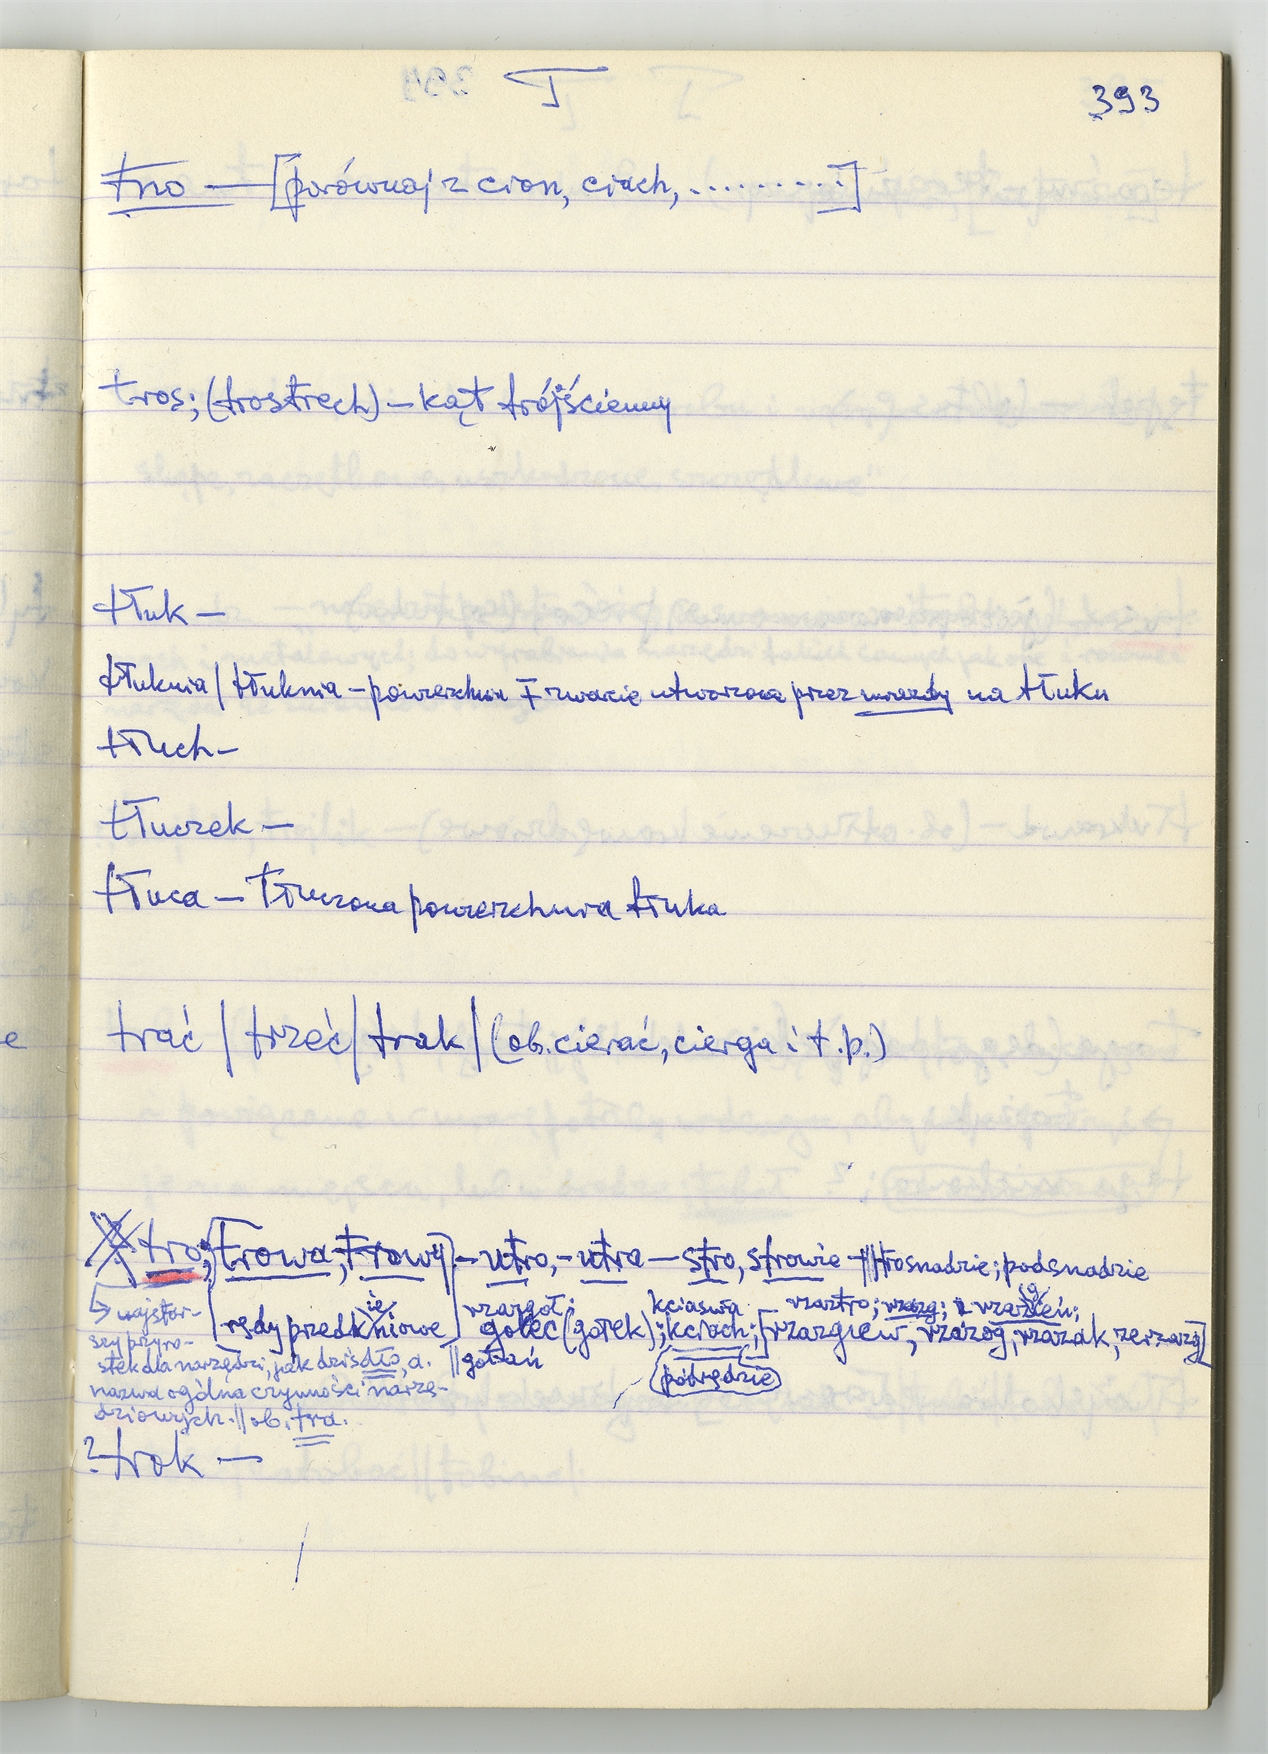 T
393
tno — [porównaj z cion, ciach, ..........]
tros; (trostrech) — kąt trójścienny
tłuk —
tłuknia / tłuknia — powierzchnia zwarcie utworzona przez na tłuku
tłuch —
tłuczek —
tłuca — tłuczona powierzchnia tłuka
trać / trzeć / trak / (ob. cierać, cierga i t.p.)
tro; [trowa, trowy] — utro, — utra — stro, strowie — // tłosnadzie; podsnadzie
rzędy przedkniowe] wzargoł; kciaswa wzartro; wzarg;
gołec (gołek); kciach; [wzargiew, wzarog, wzazak, zerzazg]
// gołań
półrędzie
↳ najstar-
szy przyro-
stek dla narzędzi, jak dziś dło, a.
nazwa ogólna czynności narzę-
dziowych. // ob. tra.
? trok —